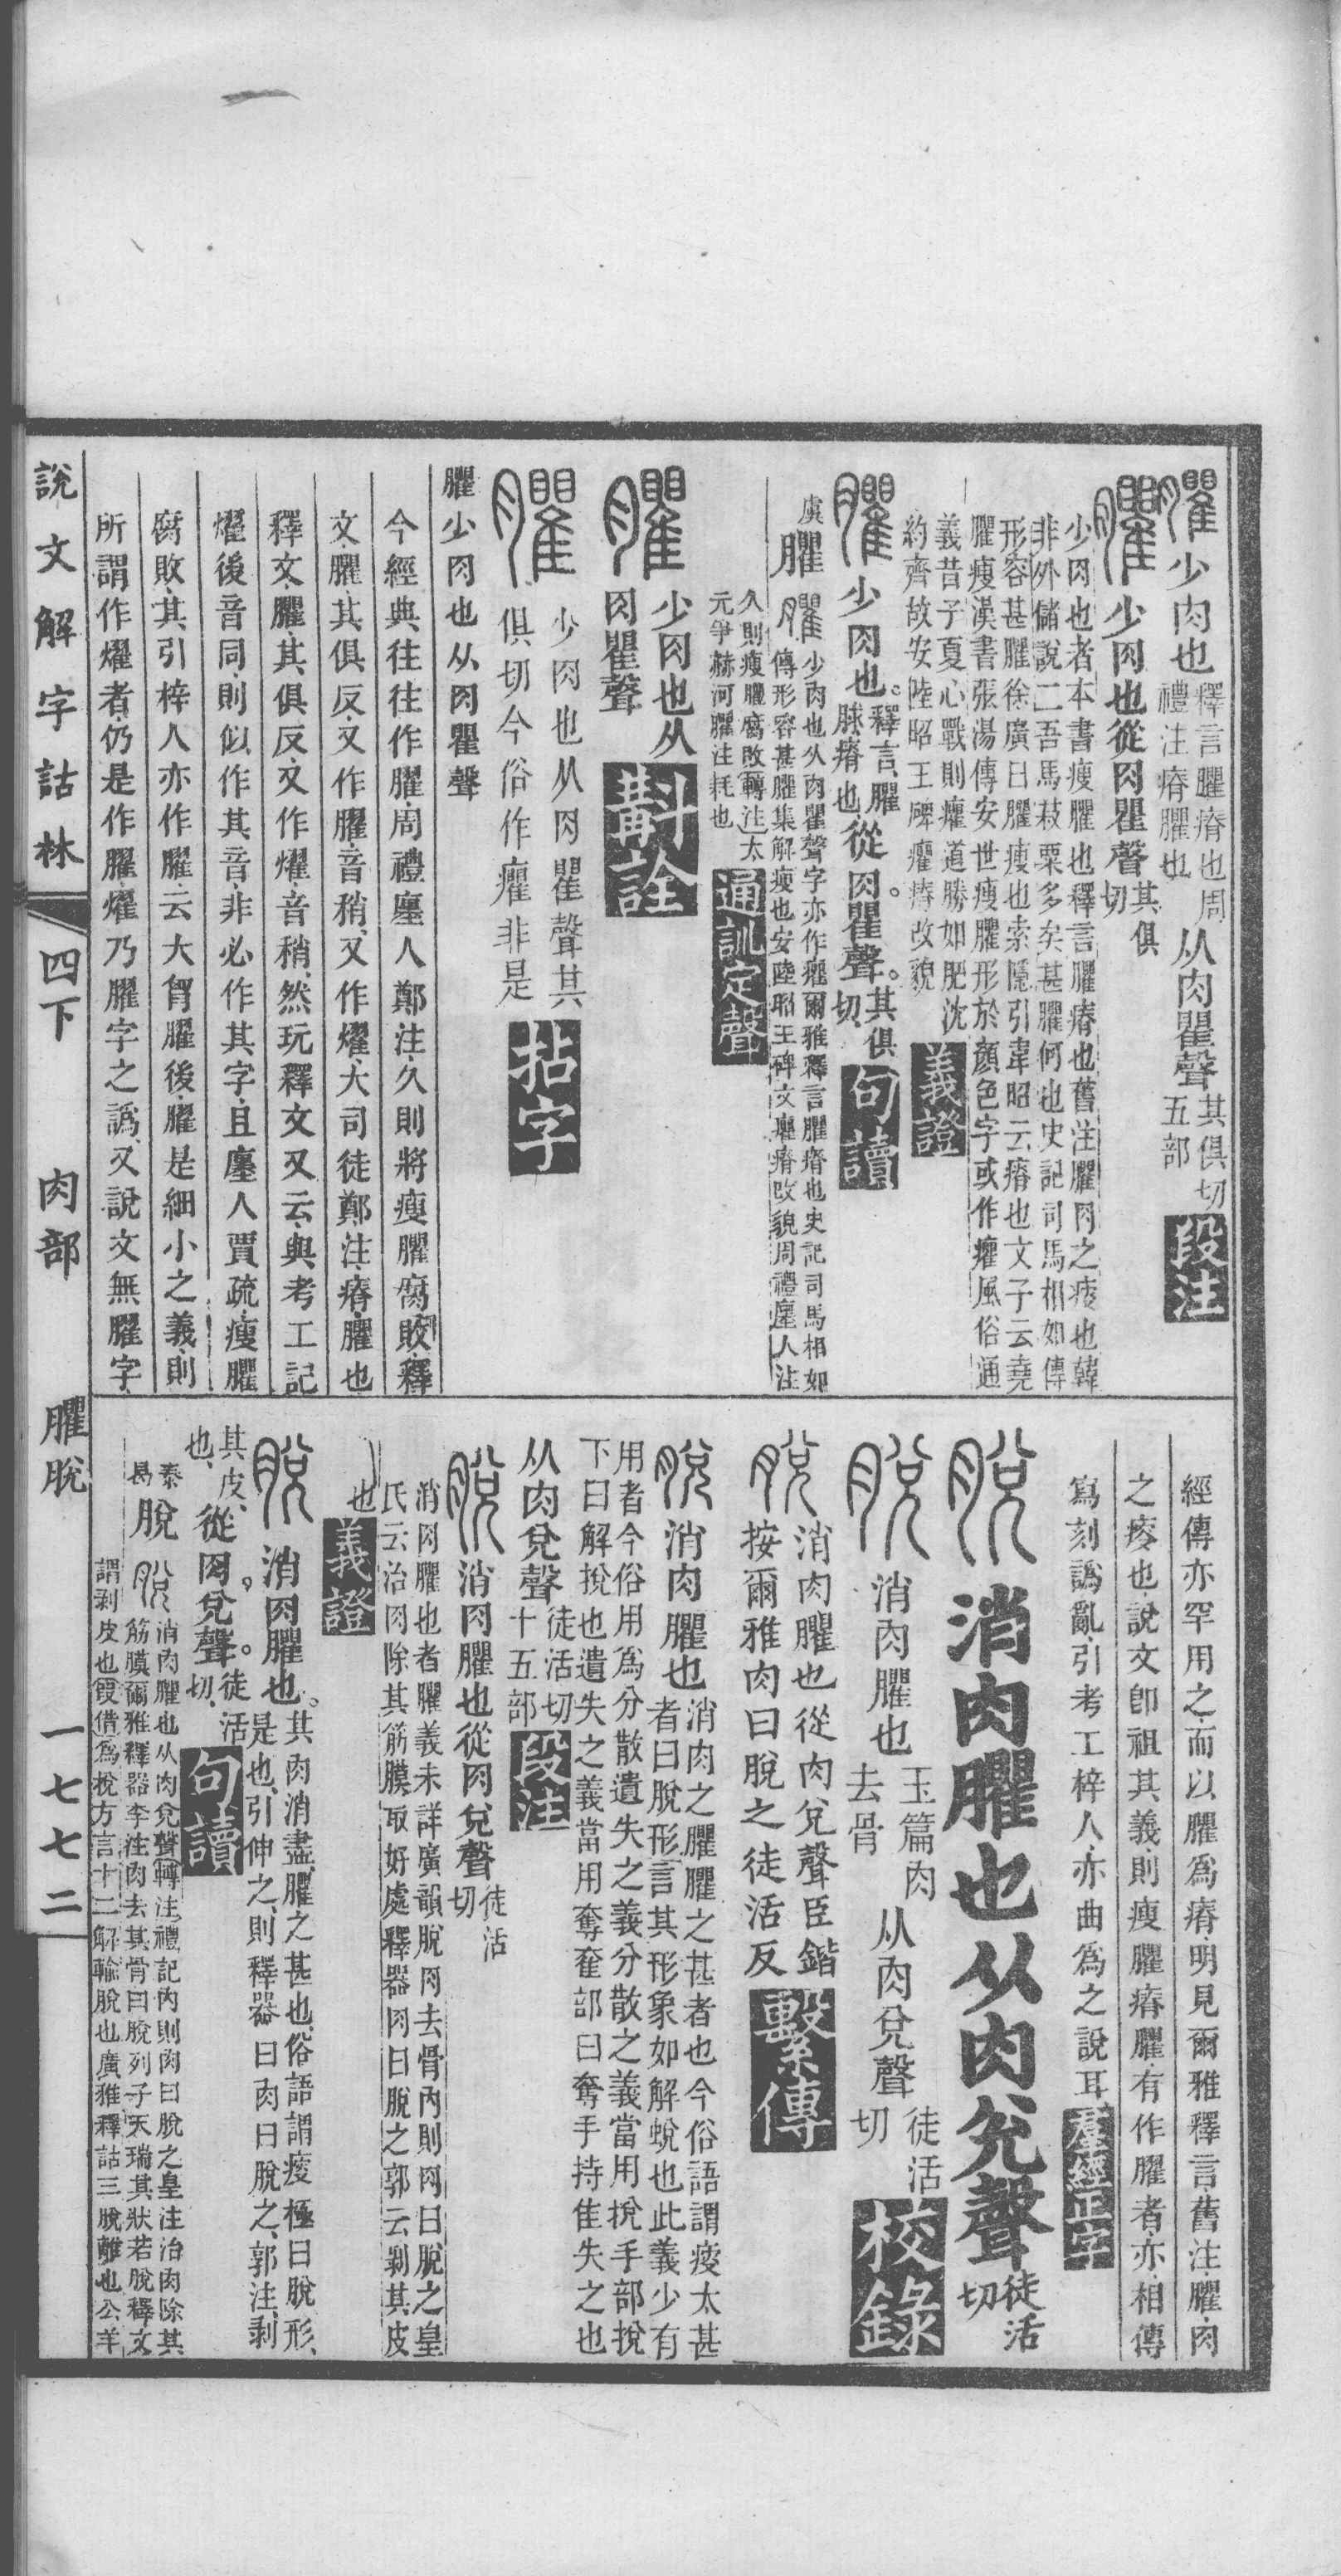 臞少肉也釋言臞瘠也周禮注瘠臞也从肉瞿聲其俱切五部段注
臞少肉也從肉瞿聲其俱切
少肉也者本書瘦臞也釋言臞瘠也舊注臞肉之瘦也韓
非外儲說二吾馬菽粟多矣甚臞何也史記司馬相如傳
形容甚臞徐廣曰臞瘦也索隱引韋昭云瘠也文子云堯
臞瘦漢書張湯傳安世瘦臞形於顏色字或作癯風俗通
義昔子夏心戰則癯道勝如肥沈
約齊故安陸昭王碑癯瘠改貌義證
臞少肉也。釋言臞脙瘠也從肉。瞿聲。其俱切句讀
虞臞臞少肉也从肉瞿聲字亦作癯爾雅釋言臞瘠也史記司馬相如
傳形容甚臞集解瘦也安陸昭王碑文癯瘠改貌周禮廛人注
久則瘦臞腐敗轉注太
元爭赫河臞注耗也通訓定聲
臞少肉也从肉瞿聲斠詮
臞少肉也从肉瞿聲其俱切今俗作癯非是拈字
臞少肉也从肉瞿聲
今經典往往作臞周禮廛人鄭注久則將瘦臞腐敗釋
文臞其俱反又作臞音稍又作燿大司徒鄭注瘠臞也
釋文臞其俱反又作燿音稍然玩釋文又云與考工記
燿後音同則似作其音非必作其字且廛人賈疏瘦臞
腐敗其引梓人亦作臞云大胷臞後臞是細小之義則
所謂作燿者仍是作臞燿乃臞字之譌又說文無臞字
經傳亦罕用之而以臞爲瘠明見爾雅釋言舊注臞肉
之瘦也說文卽祖其義則瘦臞瘠臞有作臞者亦相傳
寫刻譌亂引考工梓人亦曲爲之說耳羣經正字
脫消肉臞也从肉兌聲徒活切
脫消肉臞也玉篇肉去骨从肉兌聲徒活切校錄
脫消肉臞也從肉兌聲臣鍇按爾雅肉曰脫之徒活反繫傳
脫消肉臞也消肉之臞臞之甚者也今俗語謂瘦太甚
者曰脫形言其形象如解蛻也此義少有
用者今俗用爲分散遺失之義分散之義當用挩手部挩
下曰解挩也遺失之義當用奪奞部曰奪手持隹失之也
从肉兌聲徒活切十五部段注
脫消肉臞也從肉兌聲徒活切
消肉臞也者臞義未詳廣韻脫肉去骨內則肉曰脫之皇
氏云治肉除其筋膜取好處釋器肉曰脫之郭云剥其皮
也義證
脫消肉臞也。其肉消盡臞之甚也俗語謂瘦極曰脫形
是也引伸之則釋器曰肉曰脫之郭注剥
其皮也從肉。兌聲。徒活切句讀
泰曷脫脫消肉臞也从肉兌聲轉注禮記內則肉曰脫之皇注治肉除其
筋膜爾雅釋器李注肉去其骨曰脫列子天瑞其狀若脫釋文
謂剥皮也叚借爲挩方言十二解輸脫也廣雅釋詁三脫離也公羊
說文解字詁林
四下
肉部
臞脫
一七七二